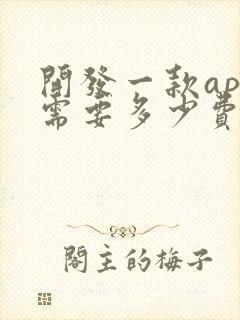 開發一款ap
需要多少費
閣主的梅子